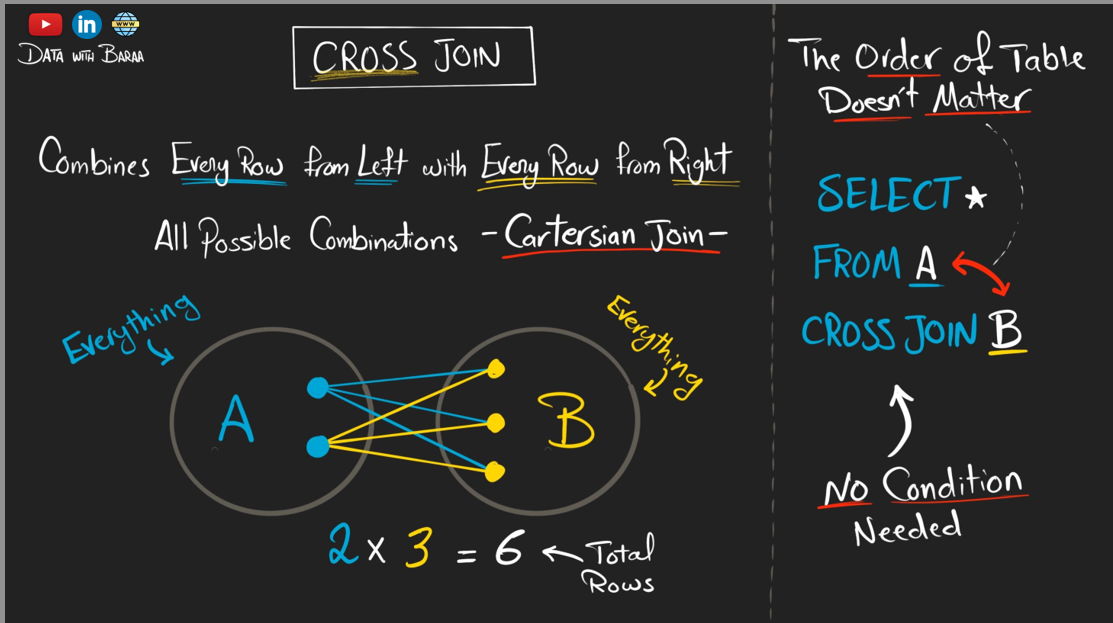 WWW
DATA WITH BARAA
CROSS JOIN
Combines Every Row from Left with Every Row from Right
All Possible Combinations - Cartersian Join -
Everything
Everything
A
B
2 x 3 = 6 Total
Rows
The Order of Table
Doesn't Matter
SELECT *
FROM A
CROSS JOIN B
No Condition
Needed